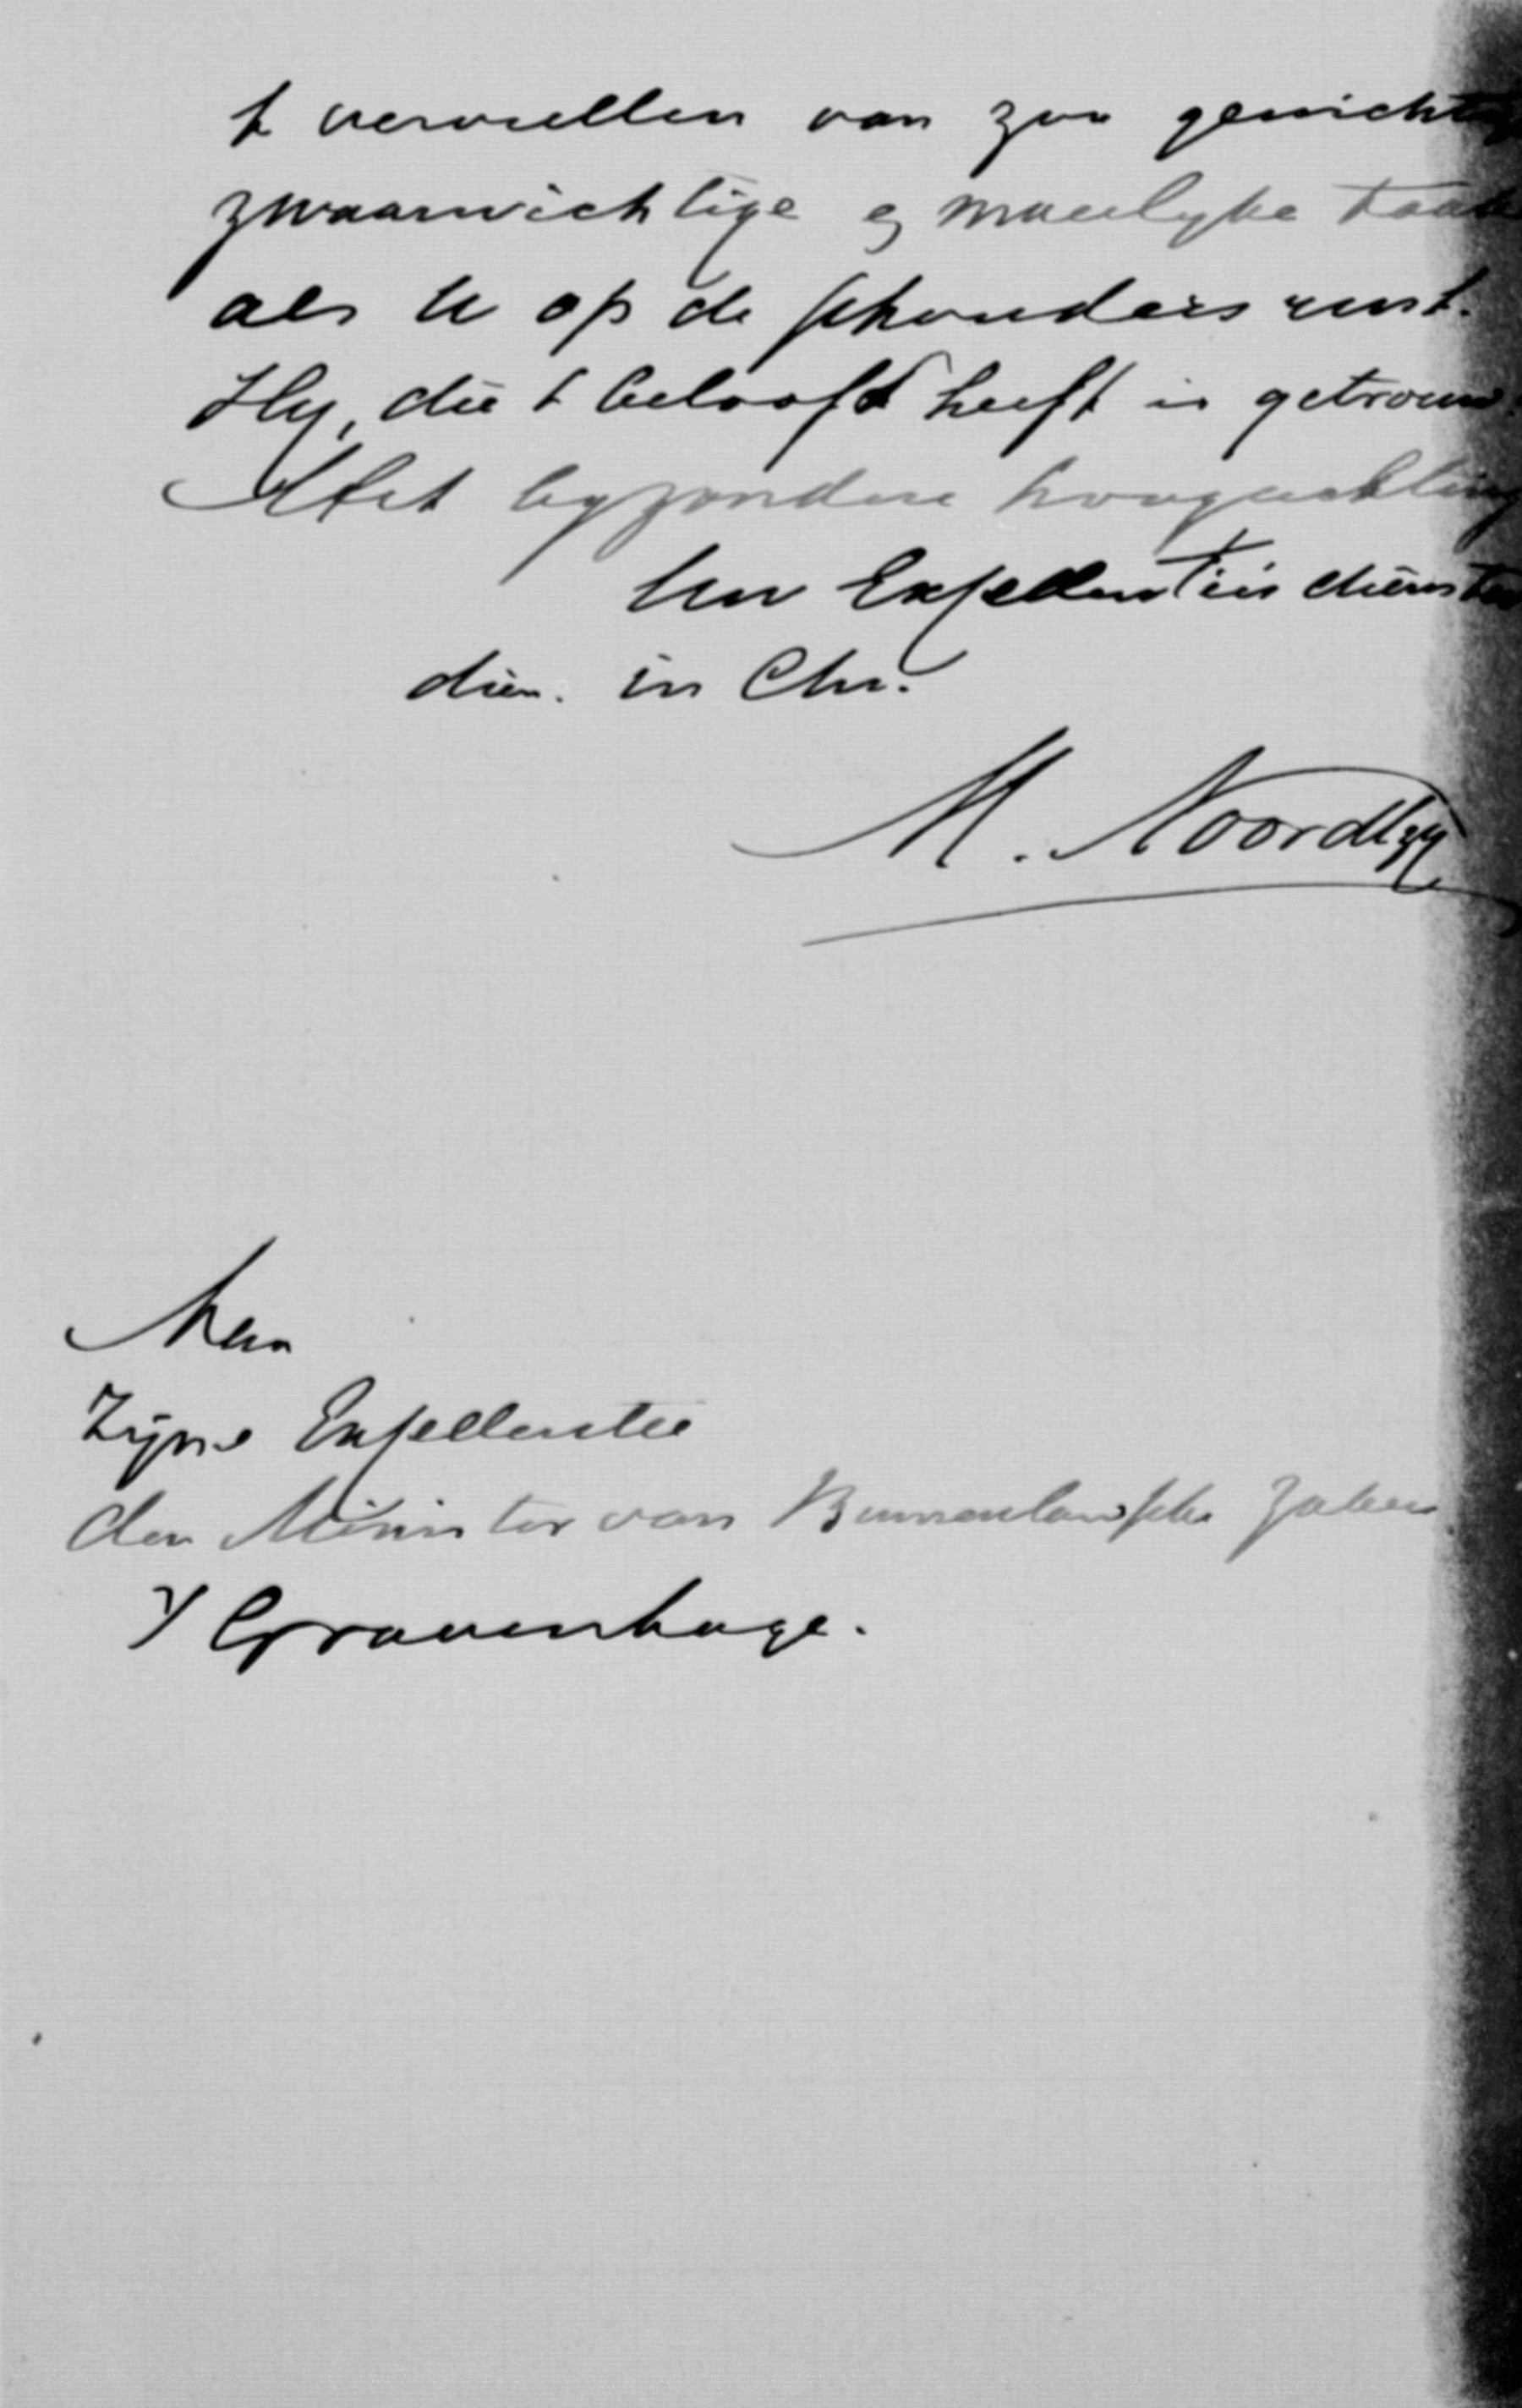 't vervullen van zoo gewichtig
zwaarwichtige en moeielyke taak
als U op de schouders rust.
Hy, die 't beloofd heeft is getrouw.
Met byzondere hoogachting
Uw Excellentie's dienstw
dien. in Chr.
M. Noordtzij
Aan
Zijne Excellentie
den Minister van Binnenlandsche Zaken
's Gravenhage.